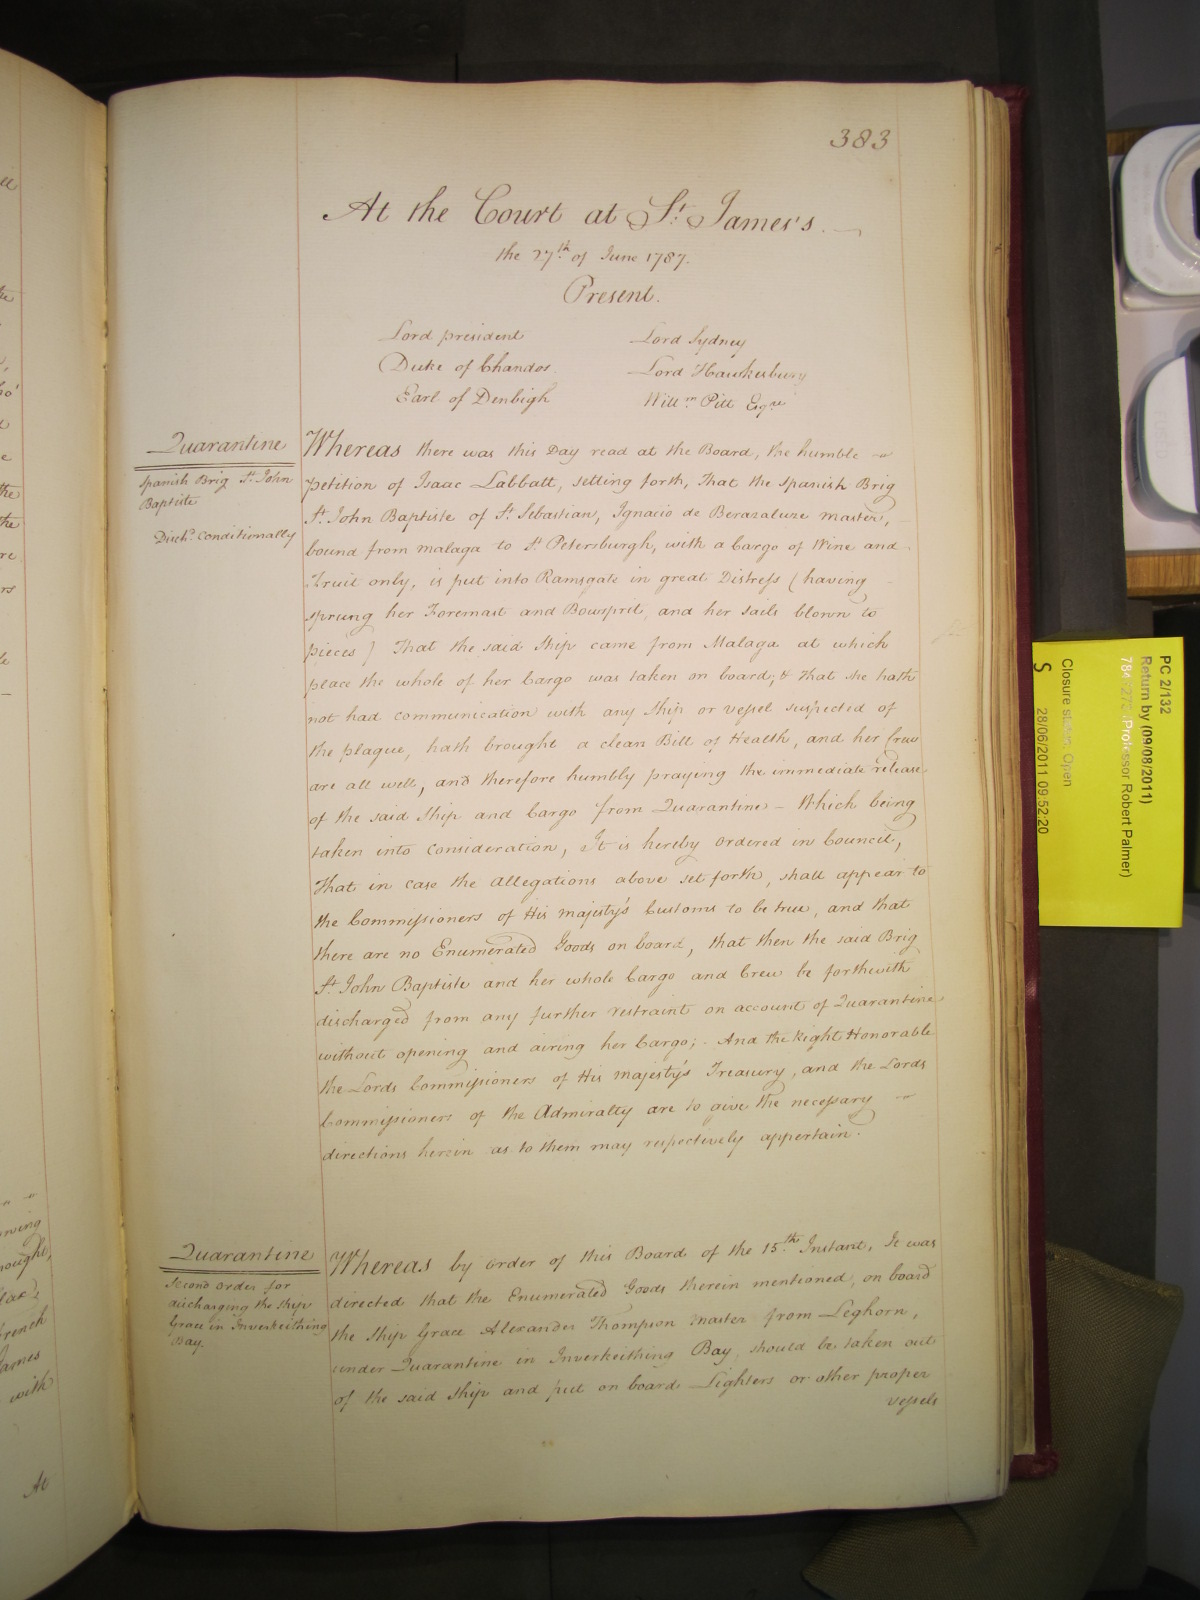 383
At the Court at St. James's.
the 27th of June 1787.
Present.
Lord president
Duke of Chandos
Earl of Denbigh
Lord Sydney
Lord Hawkesbury
Willm Pitt Esqre
Quarantine
Spanish Brig St. John
Baptiste
Disch.d conditionally
Whereas there was this Day read at the Board, the humble
petition of Isaac Labbatt, setting forth, That the Spanish Brig
St. John Baptiste of St. Sebastian, Ignacio de Berazaluze master,
bound from Malaga to St. Petersburgh, with a Cargo of Wine and
Fruit only, is put into Ramsgate in great Distress (having
sprung her Foremast and Bowsprit, and her sails blown to
pieces) That the said Ship came from Malaga at which
place the whole of her Cargo was taken on board; & That she hath
not had communication with any Ship or vessel suspected of
the plague, hath brought a clean Bill of Health, and her Crew
are all well, and therefore humbly praying the immediate release
of the said Ship and Cargo from Quarantine - Which being
taken into consideration, It is hereby ordered in Council,
That in case the Allegations above set forth, shall appear to
the Commissioners of His majesty's Customs to be true, and that
there are no Enumerated Goods on board, that then the said Brig
St. John Baptiste and her whole Cargo and Crew be forthwith
discharged from any further restraint on account of Quarantine,
without opening and airing her Cargo; And the Right Honorable
the Lords Commissioners of His majesty's Treasury, and the Lords
Commissioners of the Admiralty are to give the necessary
directions herein as to them may respectively appertain.
Quarantine
Second order for
discharging the Ship
Grace in Inverkeithing
Bay
Whereas by order of this Board of the 15th Instant, It was
directed that the Enumerated Goods therein mentioned, on board
the Ship Grace Alexander Thompson master from Leghorn,
under Quarantine in Inverkeithing Bay, should be taken out
of the said Ship and put on board Lighters or other proper
vessels
PC 2/132
Return by (09/08/2011)
(Professor Robert Palmer)
Closure status: Open
S 28/06/2011 09:52:20
At